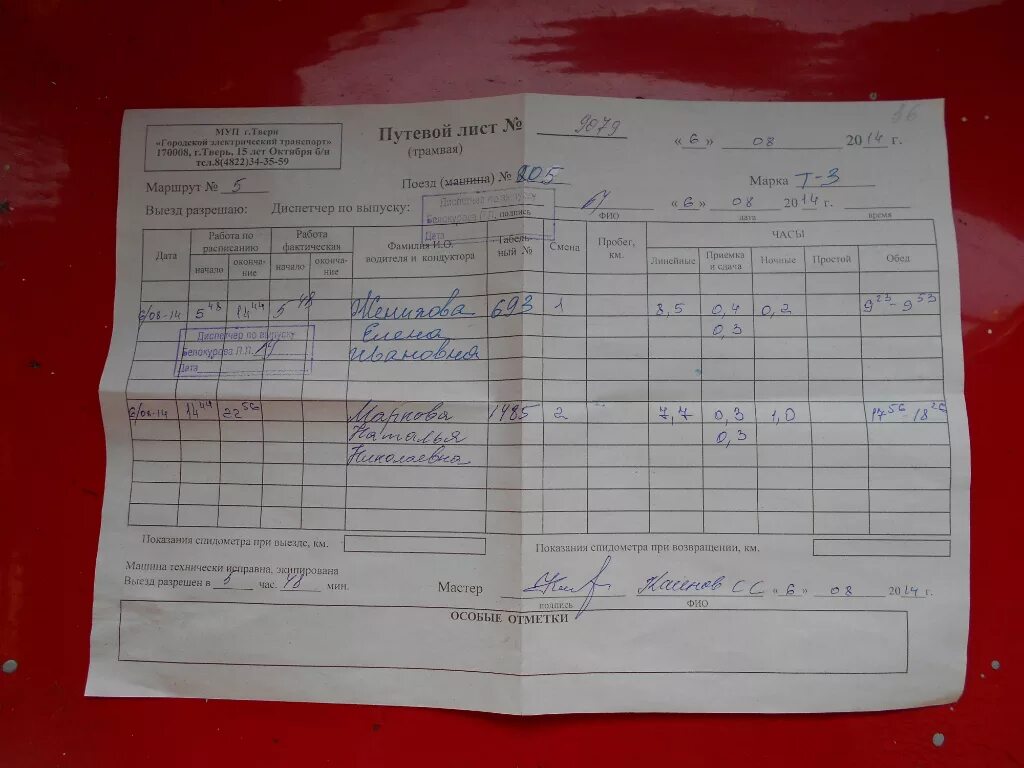 86
МУП г.Твери
«Городской электрический транспорт»
170008, г.Тверь, 15 лет Октября б/н
тел.8(4822)34-35-59
Путевой лист № 9079
(трамвая)
«6» 08 2014 г.
Маршрут № 5
Поезд (машина) № 205
Марка Т-3
Выезд разрешаю: Диспетчер по выпуску:
«6» 08 2014 г.
подпись ФИО дата время
Диспетчер по выпуску
Белокурова Л.П.
Дата
Дата Работа по расписанию Работа фактическая Фамилия И.О. водителя и кондуктора Табельный № Смена Пробег, км. ЧАСЫ
начало окончание начало окончание Линейные Приемка и сдача Ночные Простой Обед
6/08-14 5 48 14 44 5 48 Женихова 693 1 8,5 0,4 0,2 9 23 - 9 53
Елена 0,3
Ивановна
Диспетчер по выпуску
Белокурова Л.П.
Дата
6/08-14 14 44 22 56 Маркова 1485 2 7,7 0,3 1,0 17 56 - 18 26
Наталья 0,3
Николаевна
Показания спидометра при выезде, км.
Показания спидометра при возвращении, км.
Машина технически исправна, экипирована
Выезд разрешен в 5 час. 48 мин.
Мастер
«6» 08 2014 г.
подпись ФИО
ОСОБЫЕ ОТМЕТКИ